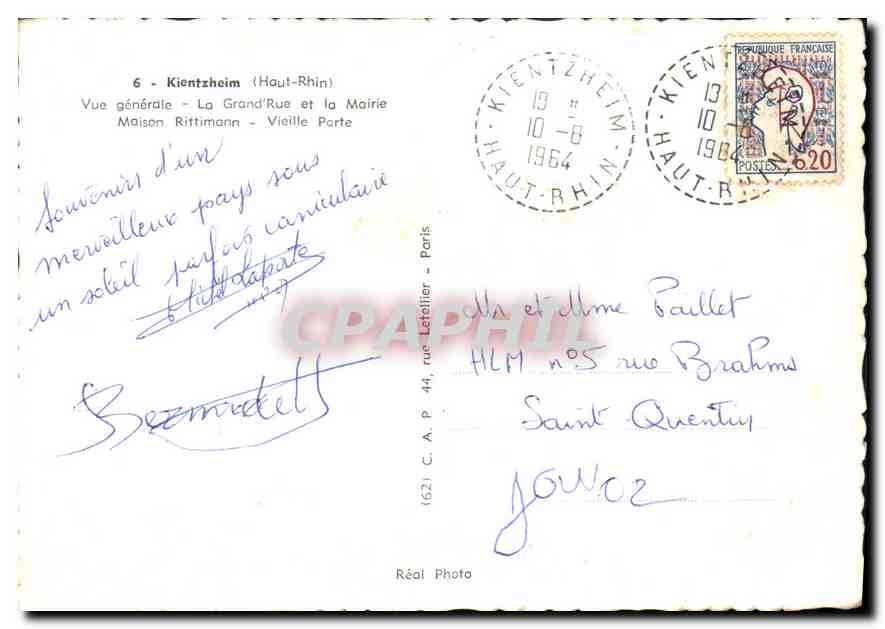 6 - Kientzheim (Haut-Rhin)
Vue générale - La Grand'Rue et la Mairie
Maison Rittimann - Vieille Porte
Souvenirs d'un
merveilleux pays sous
un soleil parfois caniculaire
Laporte
Bernadett
(62) C. A. P 44, rue Letellier - Paris
Réal Photo
KIENTZHEIM
10-8
1964
HAUT-RHIN
KIENTZHEIM
10-8
1964
HAUT-RHIN
REPUBLIQUE FRANÇAISE
POSTES
0.20
Mr et Mme Paillet
HLM n°5 rue Brahms
Saint Quentin
CPAPHIL